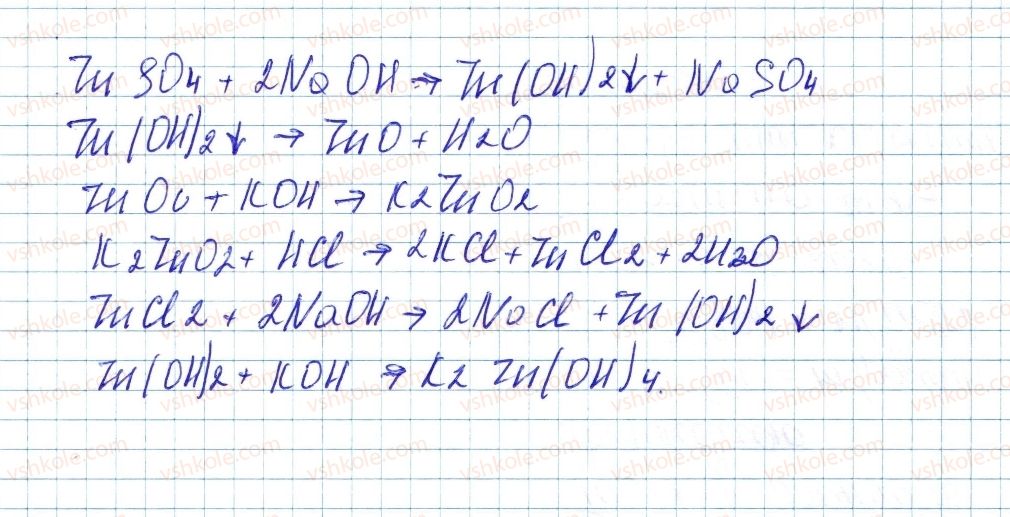 ZnSO4 + 2NaOH → Zn(OH)2↓ + NaSO4
Zn(OH)2↓ → ZnO + H2O
ZnO + KOH → K2ZnO2
K2ZnO2 + HCl → 2KCl + ZnCl2 + 2H2O
ZnCl2 + 2NaOH → 2NaCl + Zn(OH)2↓
Zn(OH)2 + KOH → K2Zn(OH)4.
vshkole.com